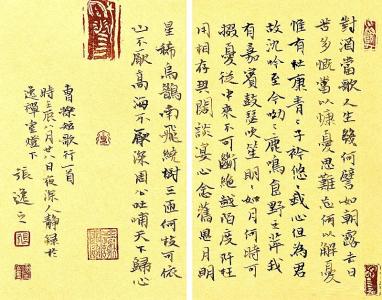 對酒當歌人生幾何譬如朝露去日
苦多慨當以慷憂思難忘何以解憂
惟有杜康青々子衿悠々我心但為君
故沈吟至今呦々鹿鳴食野之苹我
有嘉賓鼓瑟吹笙明々如月何時可
掇憂從中來不可斷絕越陌度阡枉
用相存契闊談宴心念舊恩月明
星稀烏鵲南飛繞樹三匝何枝可依
山不厭高海不厭深周公吐哺天下歸心
曹操短歌行一首
時壬辰八月廿八日夜深人靜錄於
逸禪室燈下 張逸之